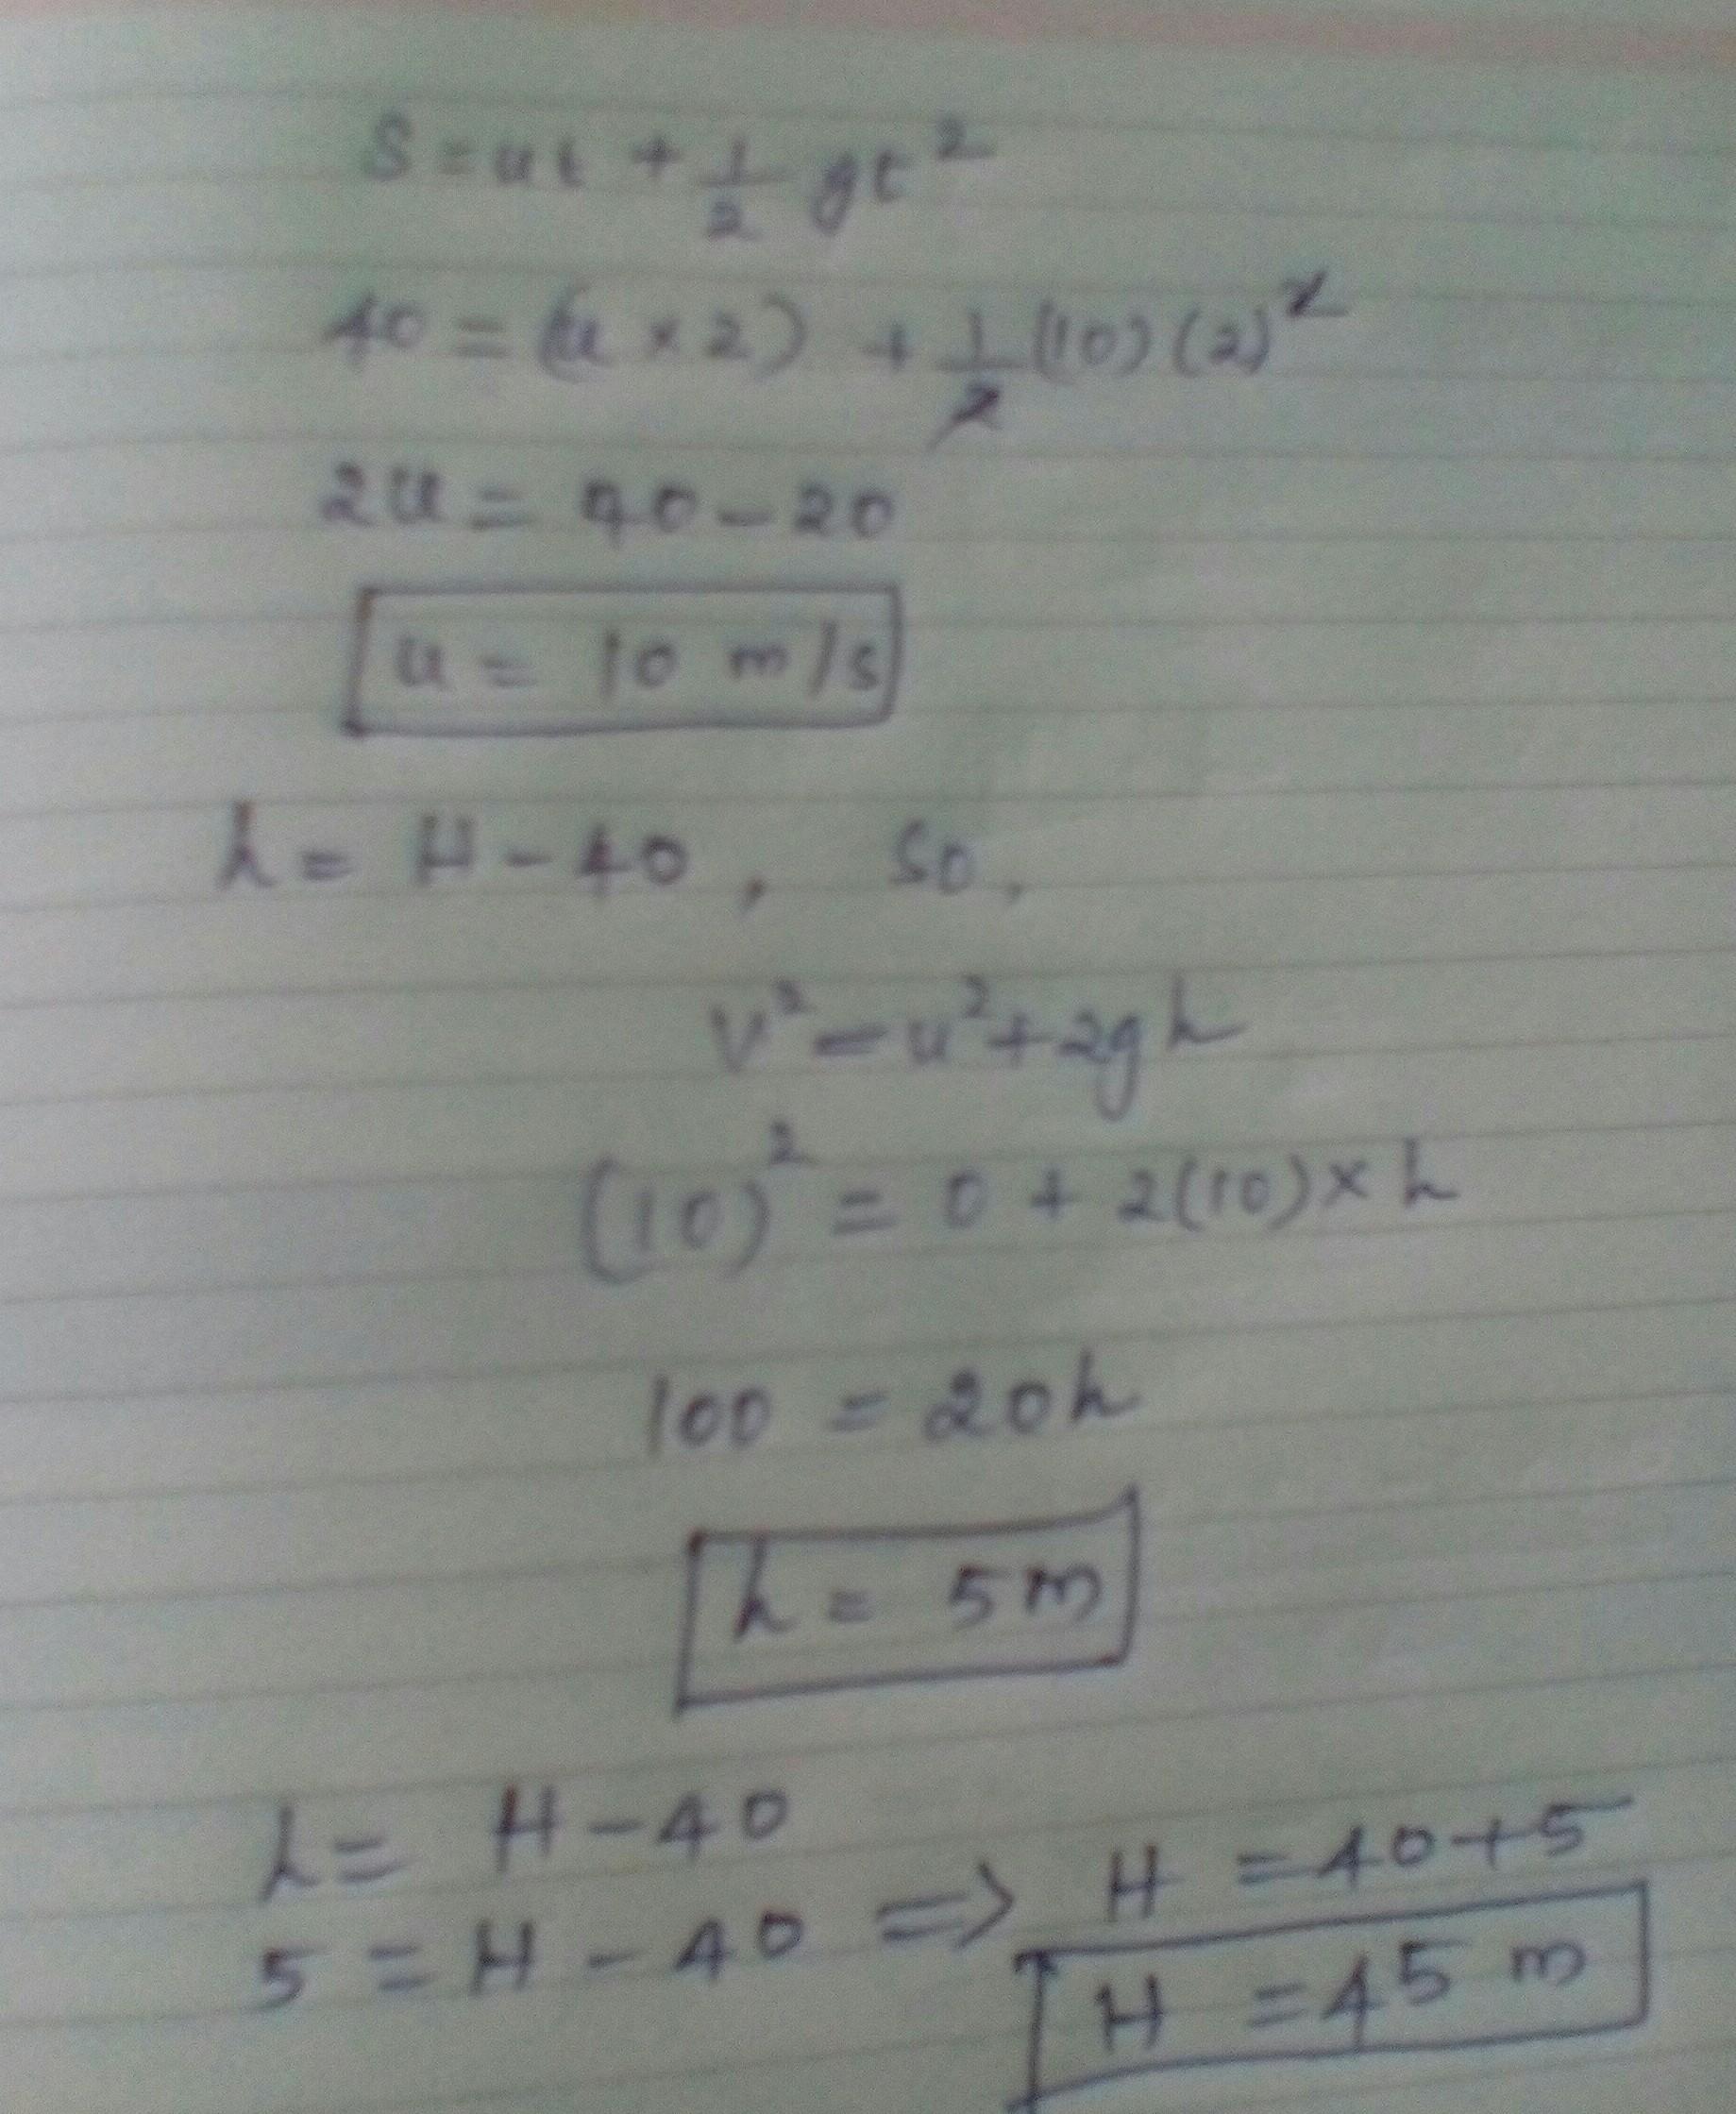 S = ut + 1/2 gt²
40 = (u × 2) + 1/2 (10) (2)²
2u = 40 - 20
u = 10 m/s
h = H - 40, so,
v² = u² + 2gh
(10)² = 0 + 2(10) × h
100 = 20h
h = 5 m
h = H - 40
5 = H - 40 => H = 40 + 5
H = 45 m